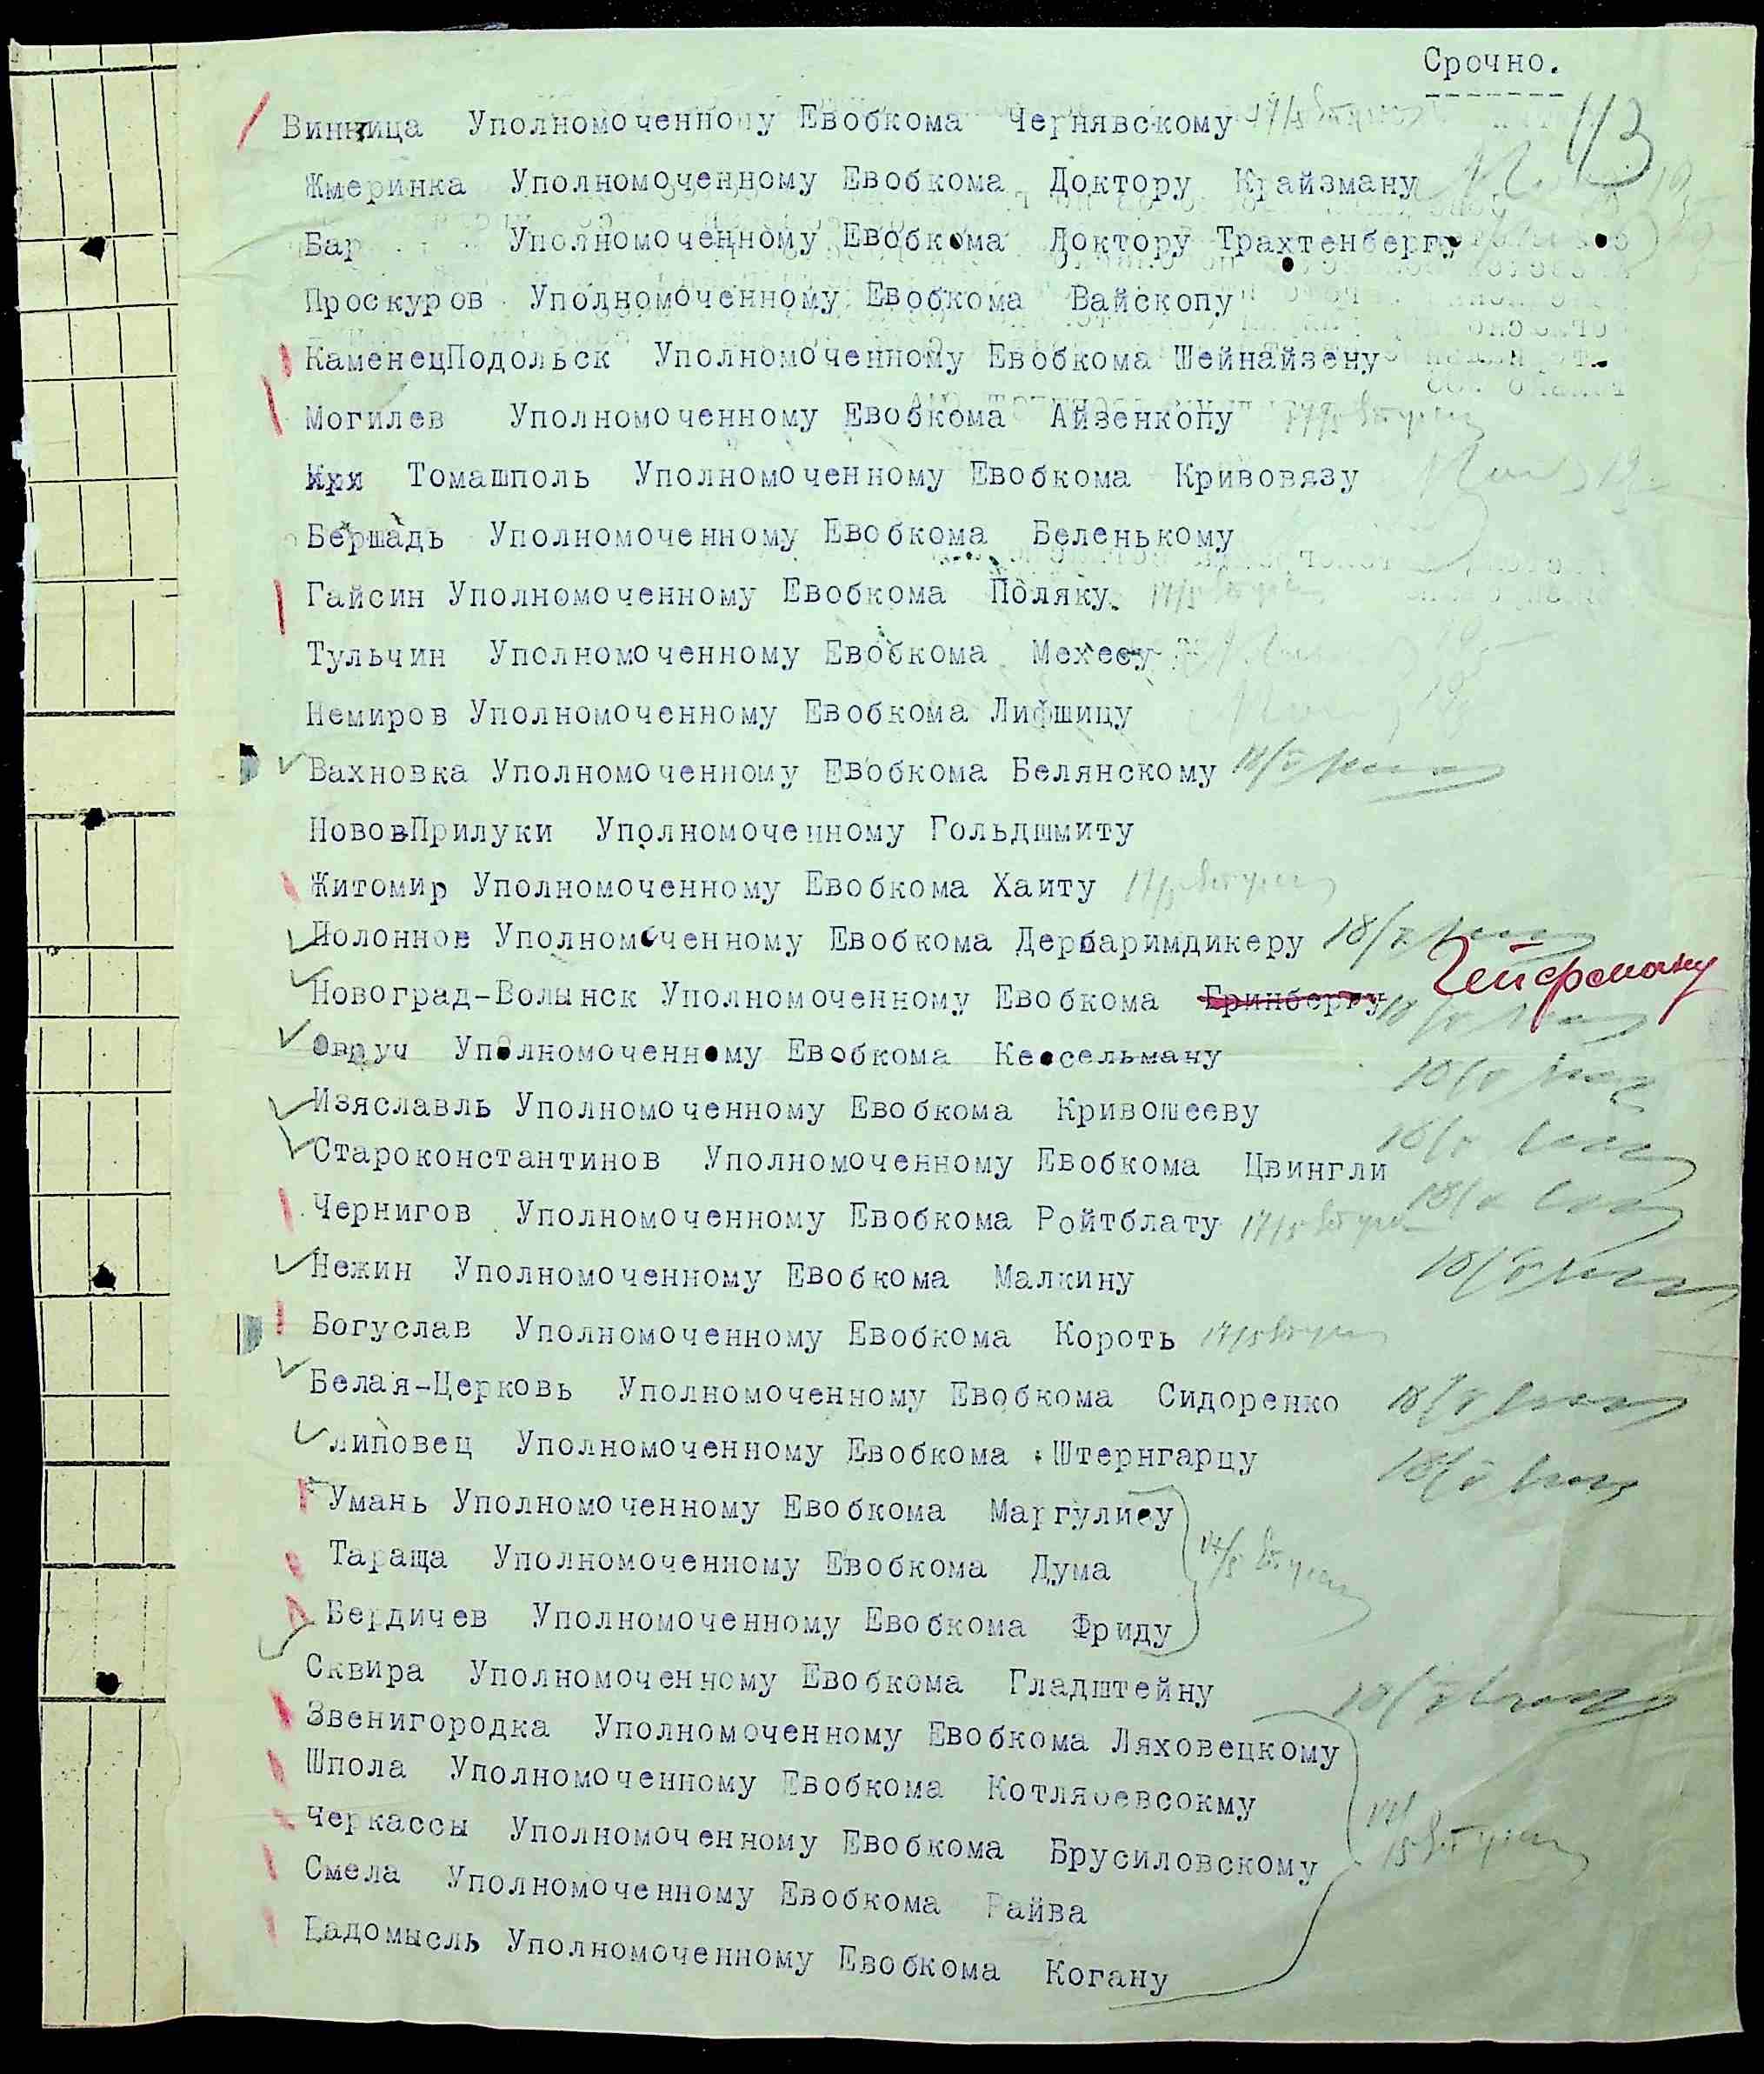 Срочно.
113
Винница Уполномоченному Евобкома Чернявскому 17/5
Жмеринка Уполномоченному Евобкома Доктору Крайзману
Бар Уполномоченному Евобкома Доктору Трахтенбергу
Проскуров Уполномоченному Евобкома Вайскопу
КаменецПодольск Уполномоченному Евобкома Шейнайзену
Могилев Уполномоченному Евобкома Айзенкопу 17/5
Кри Томашполь Уполномоченному Евобкома Кривовязу
Бершадь Уполномоченному Евобкома Беленькому
Гайсин Уполномоченному Евобкома Поляку. 17/5
Тульчин Уполномоченному Евобкома Мехесу
Немиров Уполномоченному Евобкома Лифшицу
Вахновка Уполномоченному Евобкома Белянскому 18/V
НововПрилуки Уполномоченному Гольдшмиту
Житомир Уполномоченному Евобкома Хаиту 17/5
Полонное Уполномоченному Евобкома Дербаримдикеру 18/V
Новоград-Волынск Уполномоченному Евобкома Гринбергу 18/V
Овруч Уполномоченному Евобкома Кессельману 18/V
Изяславль Уполномоченному Евобкома Кривошееву 18/V
Староконстантинов Уполномоченному Евобкома Цвингли 18/V
Чернигов Уполномоченному Евобкома Ройтблату 17/5
Нежин Уполномоченному Евобкома Малкину 18/V
Богуслав Уполномоченному Евобкома Короть 17/5
Белая-Церковь Уполномоченному Евобкома Сидоренко 18/V
липовец Уполномоченному Евобкома Штернгарцу 18/V
Умань Уполномоченному Евобкома Маргулису
Тараща Уполномоченному Евобкома Дума 17/5
Бердичев Уполномоченному Евобкома Фриду
Сквира Уполномоченному Евобкома Гладштейну 18/V
Звенигородка Уполномоченному Евобкома Ляховецкому
Шпола Уполномоченному Евобкома Котляревсокму
Черкассы Уполномоченному Евобкома Брусиловскому 17/5
Смела Уполномоченному Евобкома Райва
Радомысль Уполномоченному Евобкома Когану